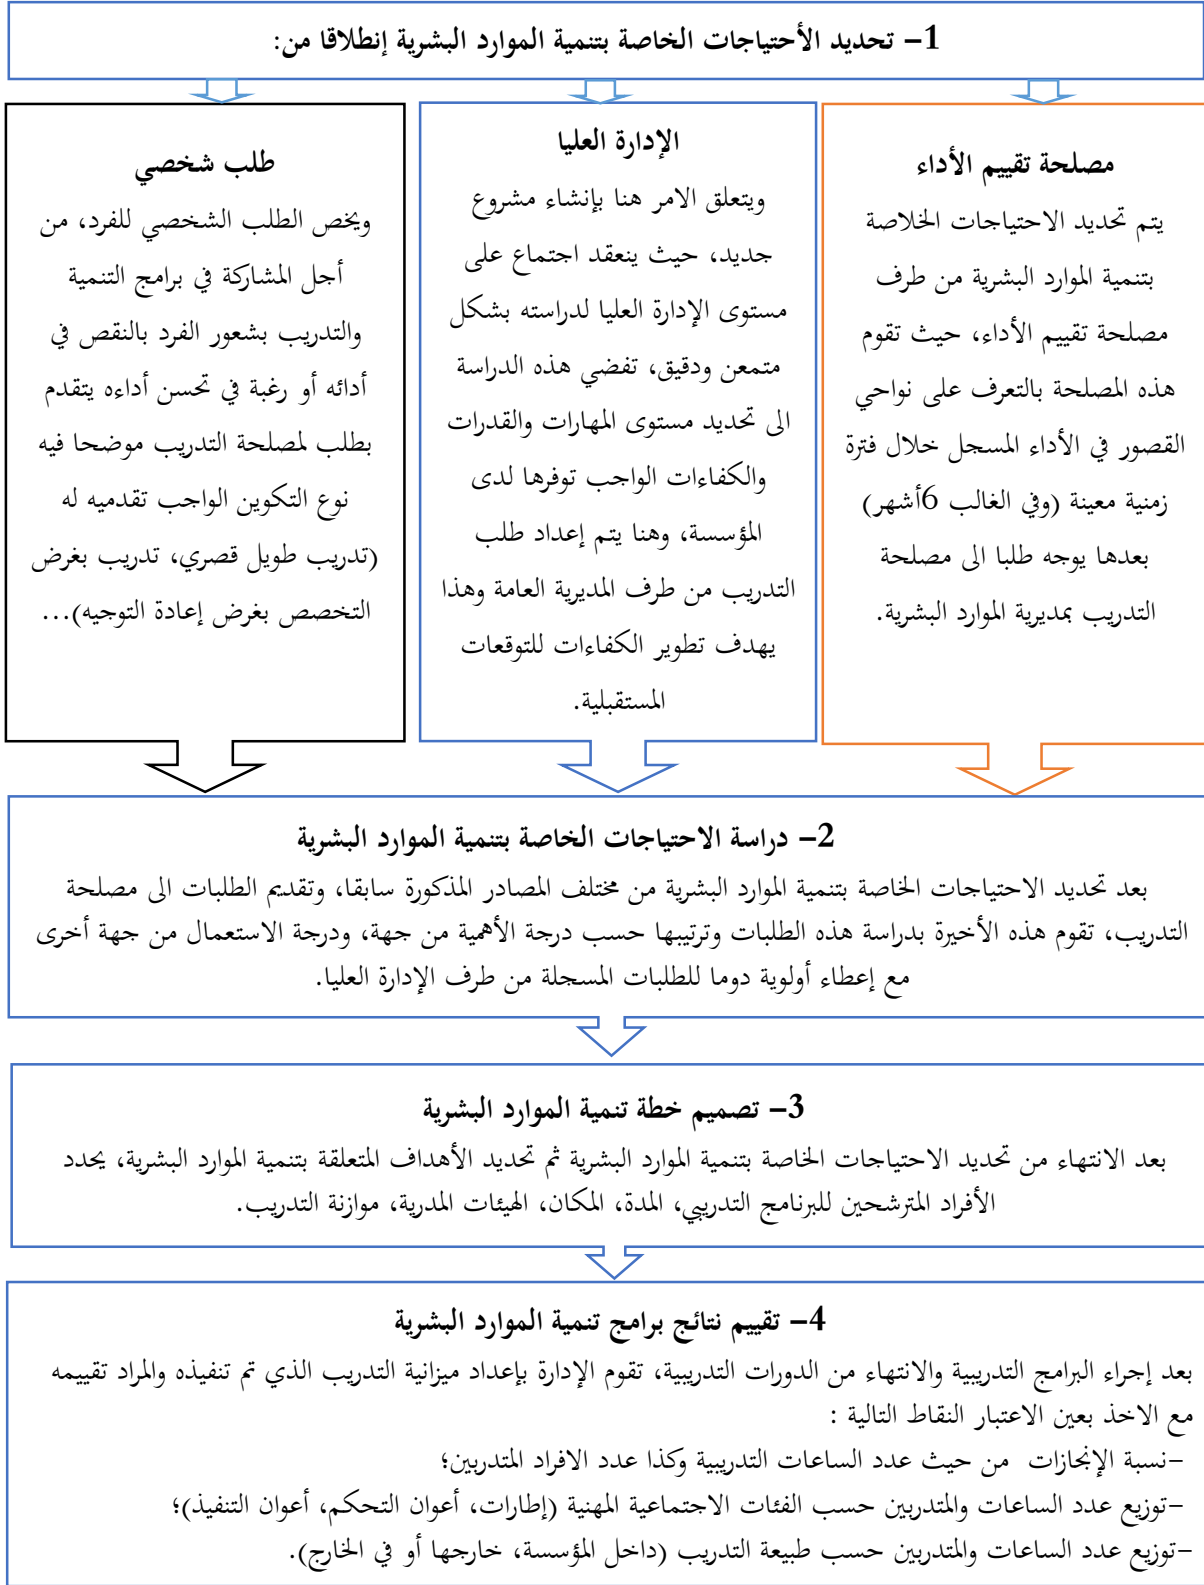 1- تحديد الأحتياجات الخاصة بتنمية الموارد البشرية إنطلاقا من:
مصلحة تقييم الأداء
يتم تحديد الاحتياجات الخلاصة
بتنمية الموارد البشرية من طرف
مصلحة تقييم الأداء، حيث تقوم
هذه المصلحة بالتعرف على نواحي
القصور في الأداء المسجل خلال فترة
زمنية معينة (وفي الغالب 6أشهر)
بعدها يوجه طلبا الى مصلحة
التدريب بمديرية الموارد البشرية.
الإدارة العليا
ويتعلق الامر هنا بإنشاء مشروع
جديد، حيث ينعقد اجتماع على
مستوى الإدارة العليا لدراسته بشكل
متمعن ودقيق، تفضي هذه الدراسة
الى تحديد مستوى المهارات والقدرات
والكفاءات الواجب توفرها لدى
المؤسسة، وهنا يتم إعداد طلب
التدريب من طرف المديرية العامة وهذا
يهدف تطوير الكفاءات للتوقعات
المستقبلية.
طلب شخصي
ويخص الطلب الشخصي للفرد، من
أجل المشاركة في برامج التنمية
والتدريب بشعور الفرد بالنقص في
أدائه أو رغبة في تحسن أداءه يتقدم
بطلب لمصلحة التدريب موضحا فيه
نوع التكوين الواجب تقدميه له
(تدريب طويل قصري، تدريب بغرض
التخصص بغرض إعادة التوجيه)...
2- دراسة الاحتياجات الخاصة بتنمية الموارد البشرية
بعد تحديد الاحتياجات الخاصة بتنمية الموارد البشرية من مختلف المصادر المذكورة سابقا، وتقديم الطلبات الى مصلحة
التدريب، تقوم هذه الأخيرة بدراسة هذه الطلبات وترتيبها حسب درجة الأهمية من جهة، ودرجة الاستعمال من جهة أخرى
مع إعطاء أولوية دوما للطلبات المسجلة من طرف الإدارة العليا.
3- تصميم خطة تنمية الموارد البشرية
بعد الانتهاء من تحديد الاحتياجات الخاصة بتنمية الموارد البشرية ثم تحديد الأهداف المتعلقة بتنمية الموارد البشرية، يحدد
الأفراد المترشحين للبرنامج التدريبي، المدة، المكان، الهيئات المدرية، موازنة التدريب.
4- تقييم نتائج برامج تنمية الموارد البشرية
بعد إجراء البرامج التدريبية والانتهاء من الدورات التدريبية، تقوم الإدارة بإعداد ميزانية التدريب الذي تم تنفيذه والمراد تقييمه
مع الاخذ بعين الاعتبار النقاط التالية :
-نسبة الإنجازات من حيث عدد الساعات التدريبية وكذا عدد الافراد المتدربين؛
-توزيع عدد الساعات والمتدربين حسب الفئات الاجتماعية المهنية (إطارات، أعوان التحكم، أعوان التنفيذ)؛
-توزيع عدد الساعات والمتدربين حسب طبيعة التدريب (داخل المؤسسة، خارجها أو في الخارج).